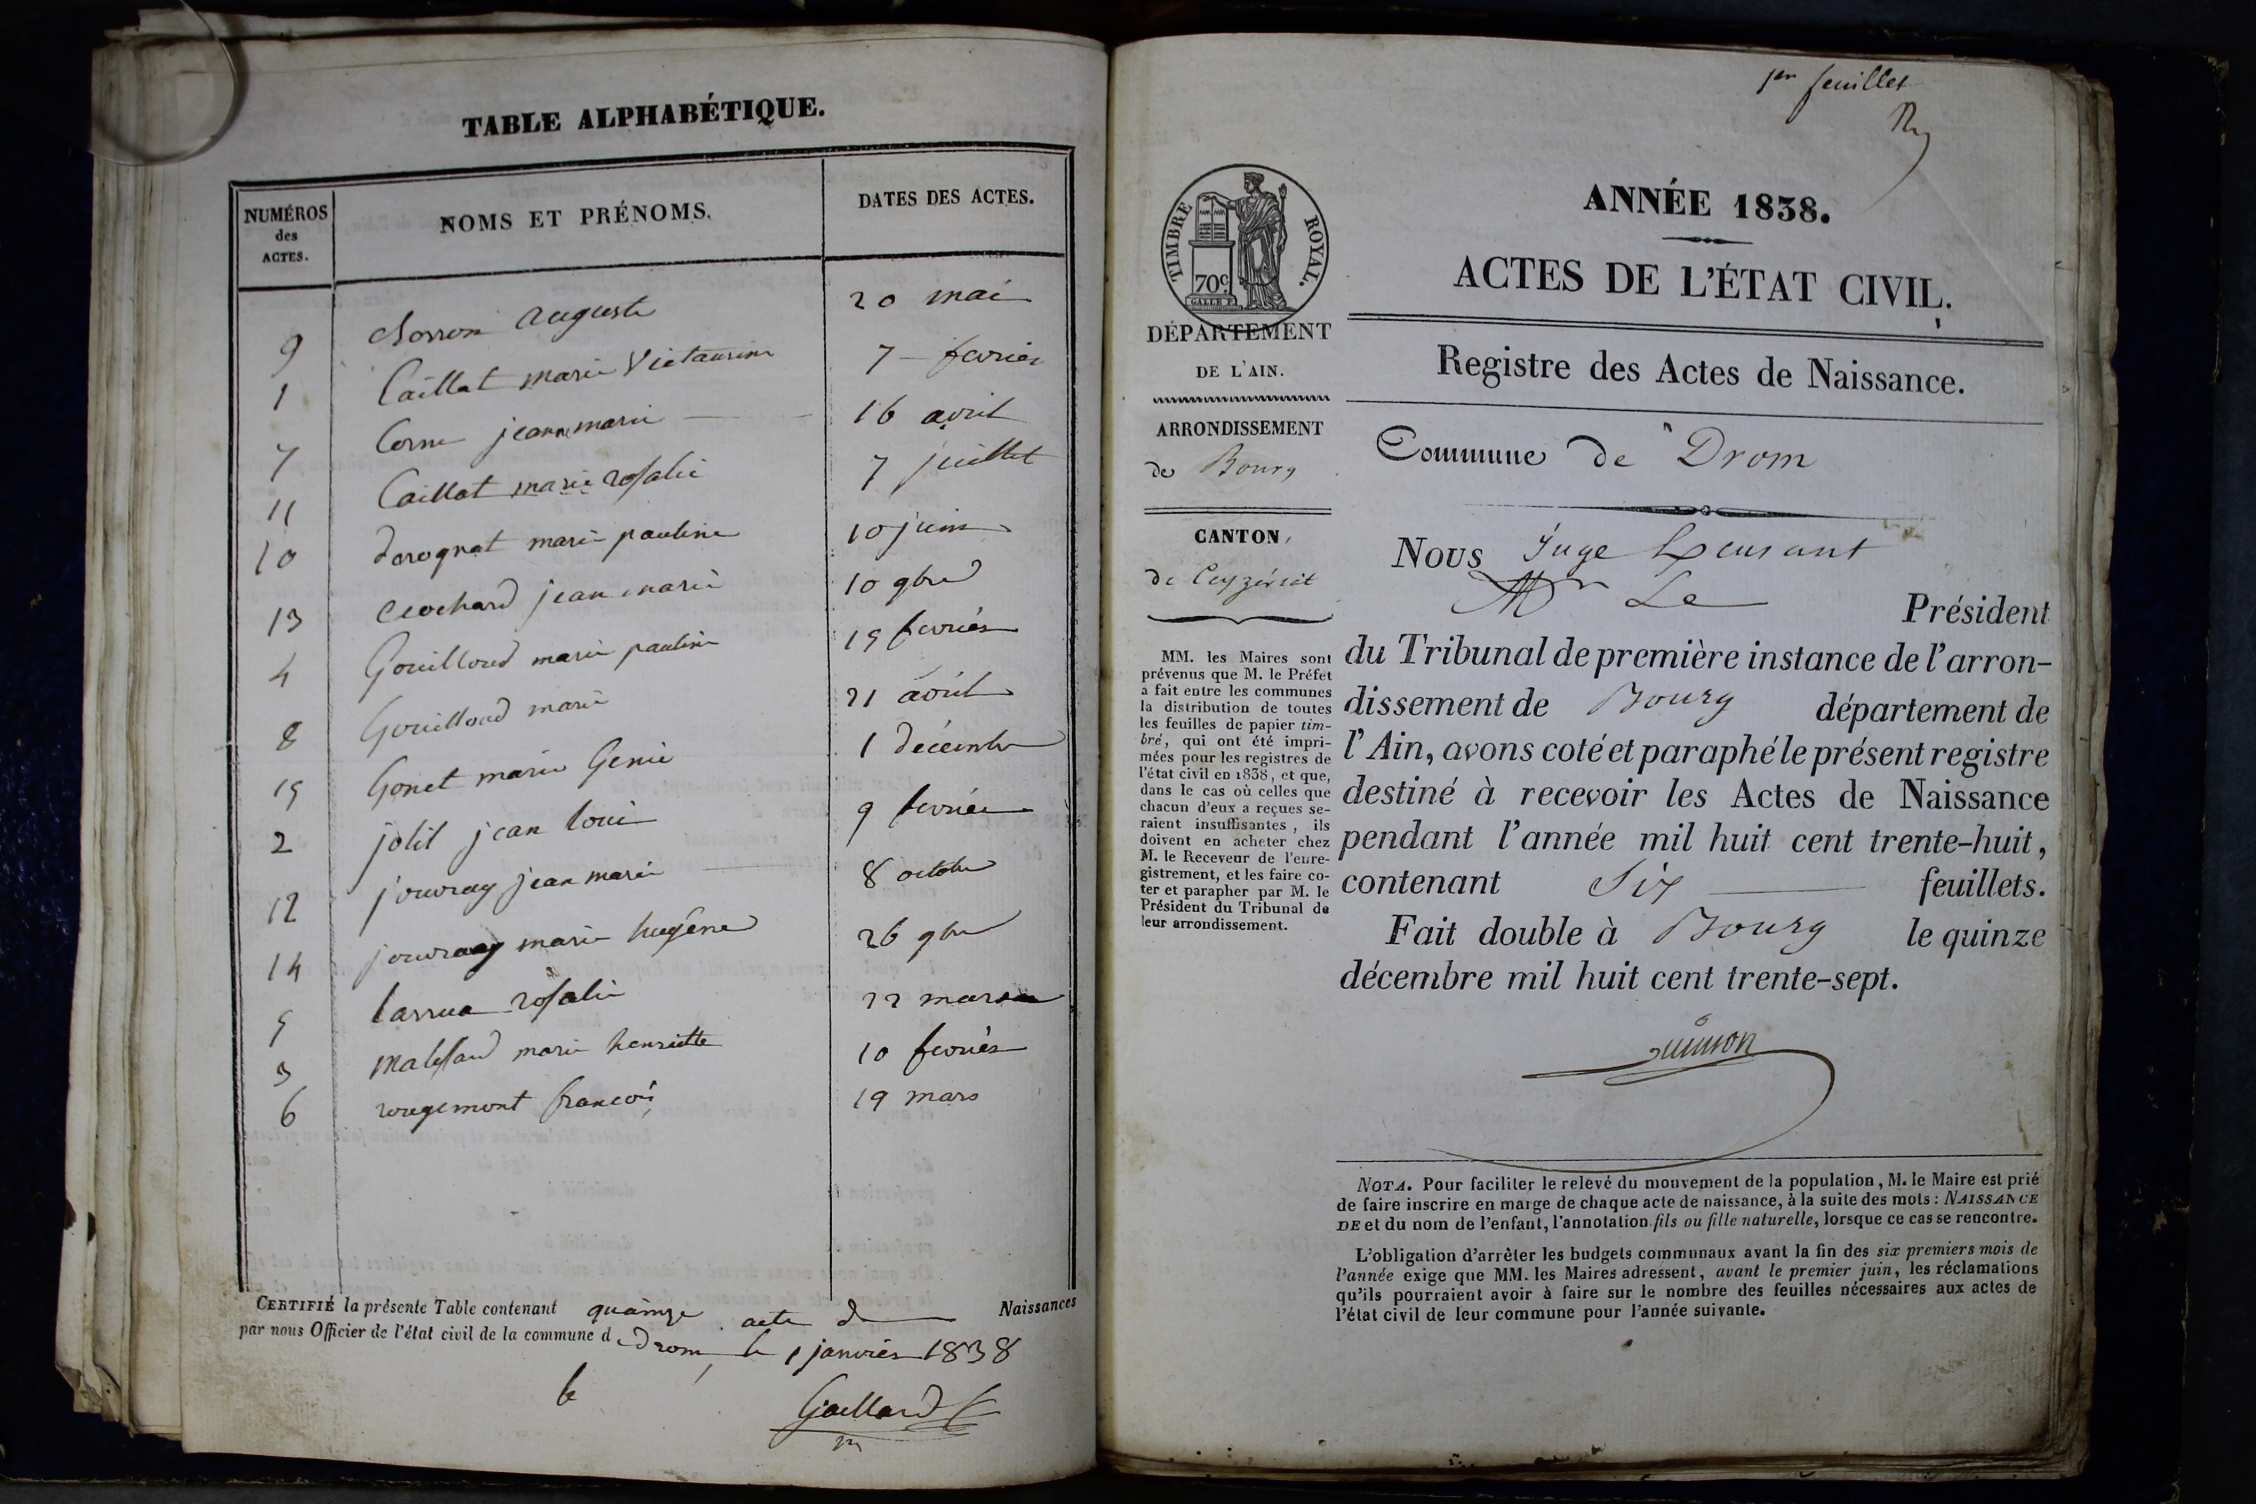 TABLE ALPHABÉTIQUE.
NUMÉROS des ACTES.
NOMS ET PRÉNOMS.
DATES DES ACTES.
9 auguste 20 mai
1 Caillat marie Victaurine 7 fevrier
7 Corne jeanne marie 16 avril
11 Caillat marie rosalie 7 juillet
10 derognat marie pauline 10 juin
13 clochard jean marie 10 9bre
4 Gouilloud marie pauline 15 fevrier
8 Gouilloud marie 21 avril
15 Gonet marie Genie 1 décembre
2 jolit jean loui 9 fevrier
12 jouvray jean marie 8 octobre
14 jouvray marie hugêne 26 9bre
5 larrua rosalie 12 mars
3 marie henriette 10 fevrier
6 rougemont francois 19 mars
CERTIFIÉ la présente Table contenant quainze acte de Naissances
par nous Officier de l'état civil de la commune de drom, le 1 janvier 1838
le
Gaillard
m
1er feuillet
TIMBRE ROYAL.
70c.
ANNÉE 1838.
ACTES DE L'ÉTAT CIVIL.
DÉPARTEMENT
DE L'AIN.
ARRONDISSEMENT
de Bourg
CANTON,
de Ceyzériat
MM. les Maires sont
prévenus que M. le Préfet
a fait entre les communes
la distribution de toutes
les feuilles de papier tim-
bré, qui ont été impri-
mées pour les registres de
l'état civil en 1838, et que,
dans le cas où celles que
chacun d'eux a reçues se-
raient insuffisantes, ils
doivent en acheter chez
M. le Receveur de l'enre-
gistrement, et les faire co-
ter et parapher par M. le
Président du Tribunal de
leur arrondissement.
Registre des Actes de Naissance.
Commune de Drom
Nous Juge
Mr Le Président
du Tribunal de première instance de l'arron-
dissement de Bourg département de
l'Ain, avons coté et paraphé le présent registre
destiné à recevoir les Actes de Naissance
pendant l'année mil huit cent trente-huit,
contenant Six feuillets.
Fait double à Bourg le quinze
décembre mil huit cent trente-sept.
NOTA. Pour faciliter le relevé du mouvement de la population, M. le Maire est prié
de faire inscrire en marge de chaque acte de naissance, à la suite des mots : NAISSANCE
DE et du nom de l'enfant, l'annotation fils ou fille naturelle, lorsque ce cas se rencontre.
L'obligation d'arrêter les budgets communaux avant la fin des six premiers mois de
l'année exige que MM. les Maires adressent, avant le premier juin, les réclamations
qu'ils pourraient avoir à faire sur le nombre des feuilles nécessaires aux actes de
l'état civil de leur commune pour l'année suivante.